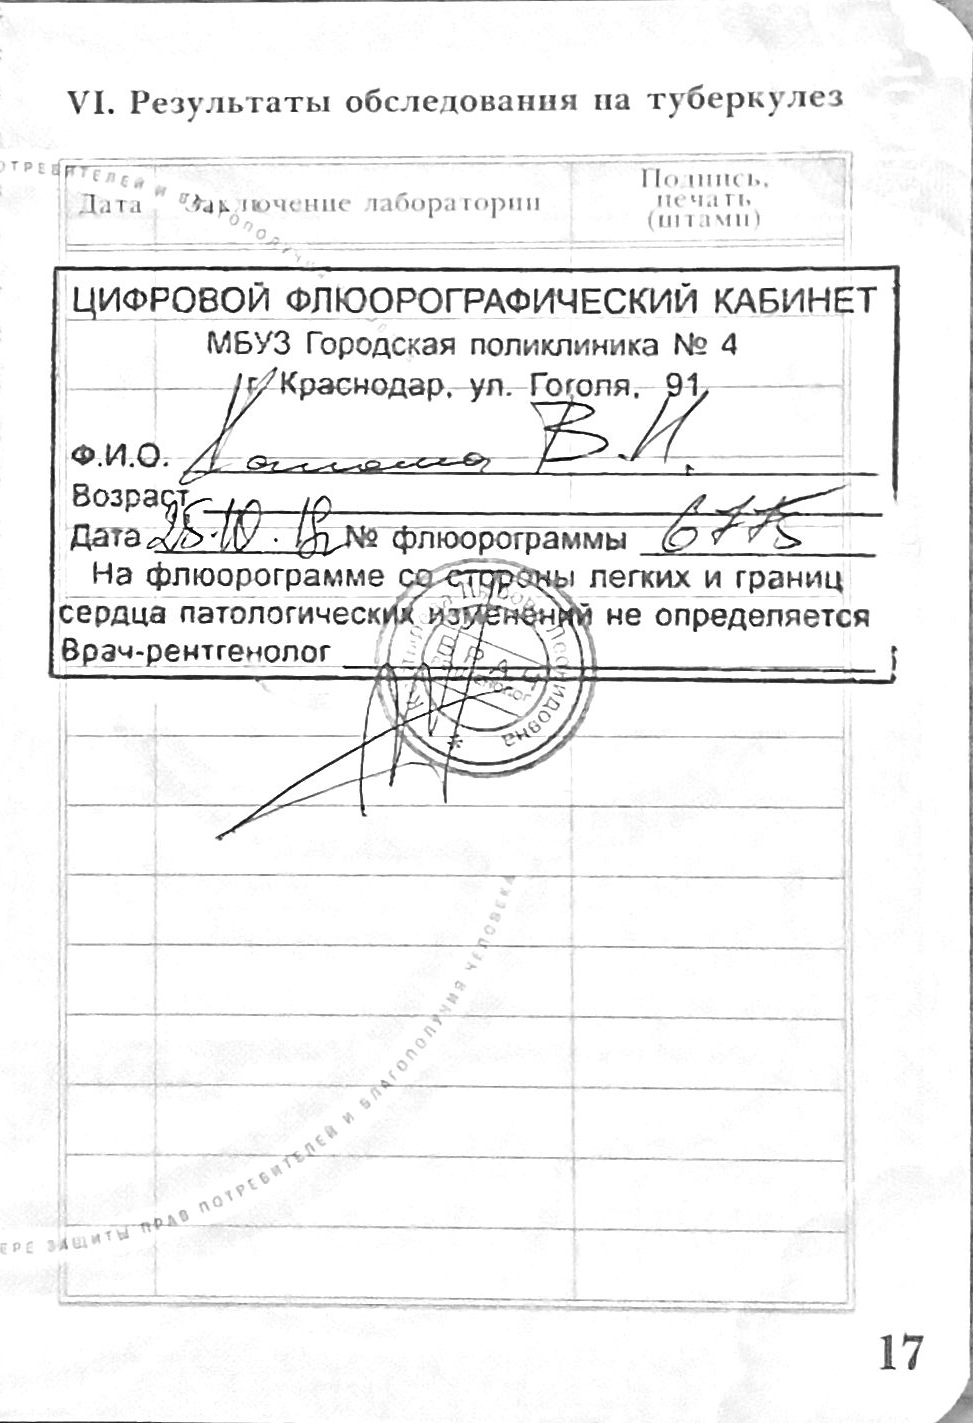 VI. Результаты обследования на туберкулез
Дата Заключение лаборатории Подпись, печать (штамп)
ЦИФРОВОЙ ФЛЮОРОГРАФИЧЕСКИЙ КАБИНЕТ
МБУЗ Городская поликлиника № 4
г. Краснодар, ул. Гоголя, 91
Ф.И.О. В.И.
Возраст
Дата 25.10.18 № флюорограммы 6775
На флюорограмме со стороны легких и границ
сердца патологических изменений не определяется
Врач-рентгенолог
ВРАЧ
Леонидовна
ЕРЕ ЗАЩИТЫ ПРАВ ПОТРЕБИТЕЛЕЙ И БЛАГОПОЛУЧИЯ ЧЕЛОВЕКА
17